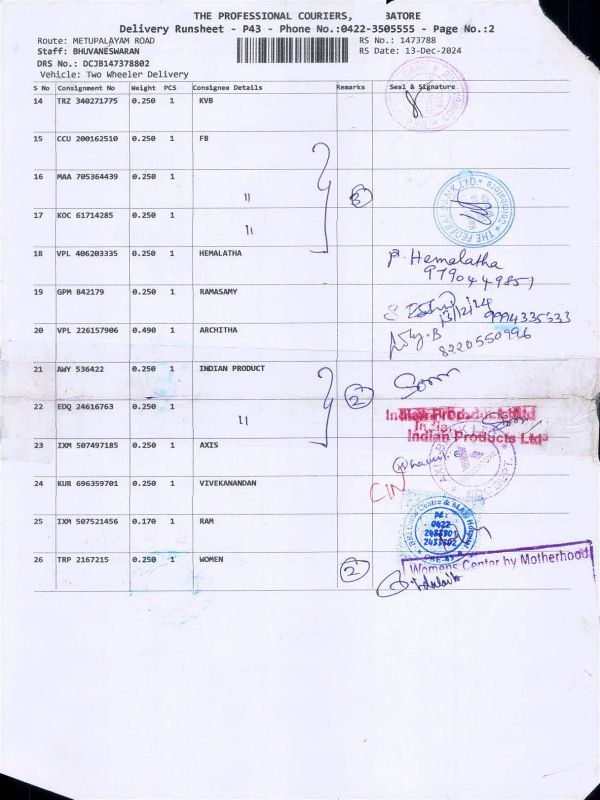 THE PROFESSIONAL COURIERS, BATORE
Delivery Runsheet - P43 - Phone No.:0422-3505555 - Page No.:2
Route: METUPALAYAM ROAD
RS No.: 1473788
Staff: BHUVANESWARAN
RS Date: 13-Dec-2024
DRS No.: DCJB147378802
Vehicle: Two Wheeler Delivery
S No Consignment No Weight PCS Consignee Details Remarks Seal & Signature
14 TRZ 340271775 0.250 1 KVB
15 CCU 200162510 0.250 1 FB
16 MAA 705364439 0.250 1 "
3
THE FEDERAL BANK LTD
17 KOC 61714285 0.250 1 "
18 VPL 406203335 0.250 1 HEMALATHA P. Hemalatha
9790449851
19 GPM 842179 0.250 1 RAMASAMY
13/12/24 9994335333
20 VPL 226157906 0.490 1 ARCHITHA
8220550996
21 AWY 536422 0.250 1 INDIAN PRODUCT
2
22 EDQ 24616763 0.250 1 "
Indian Products Ltd
23 IXM 507497185 0.250 1 AXIS
24 KUR 696359701 0.250 1 VIVEKANANDAN
25 IXM 507521456 0.170 1 RAM
0422
26 TRP 2167215 0.250 1 WOMEN 2
Womens Center by Motherhood